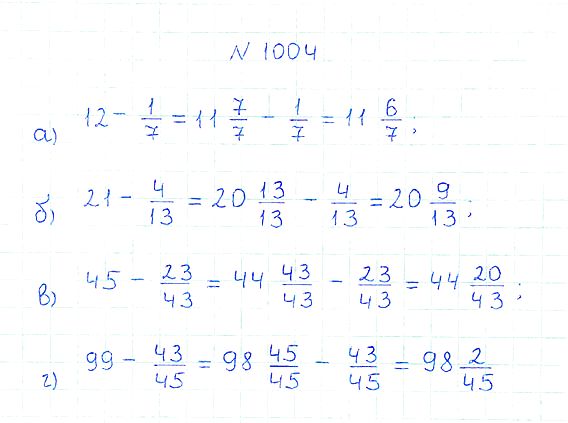 N 1004
а) 12 - 1/7 = 11 7/7 - 1/7 = 11 6/7;
б) 21 - 4/13 = 20 13/13 - 4/13 = 20 9/13;
в) 45 - 23/43 = 44 43/43 - 23/43 = 44 20/43;
г) 99 - 43/45 = 98 45/45 - 43/45 = 98 2/45